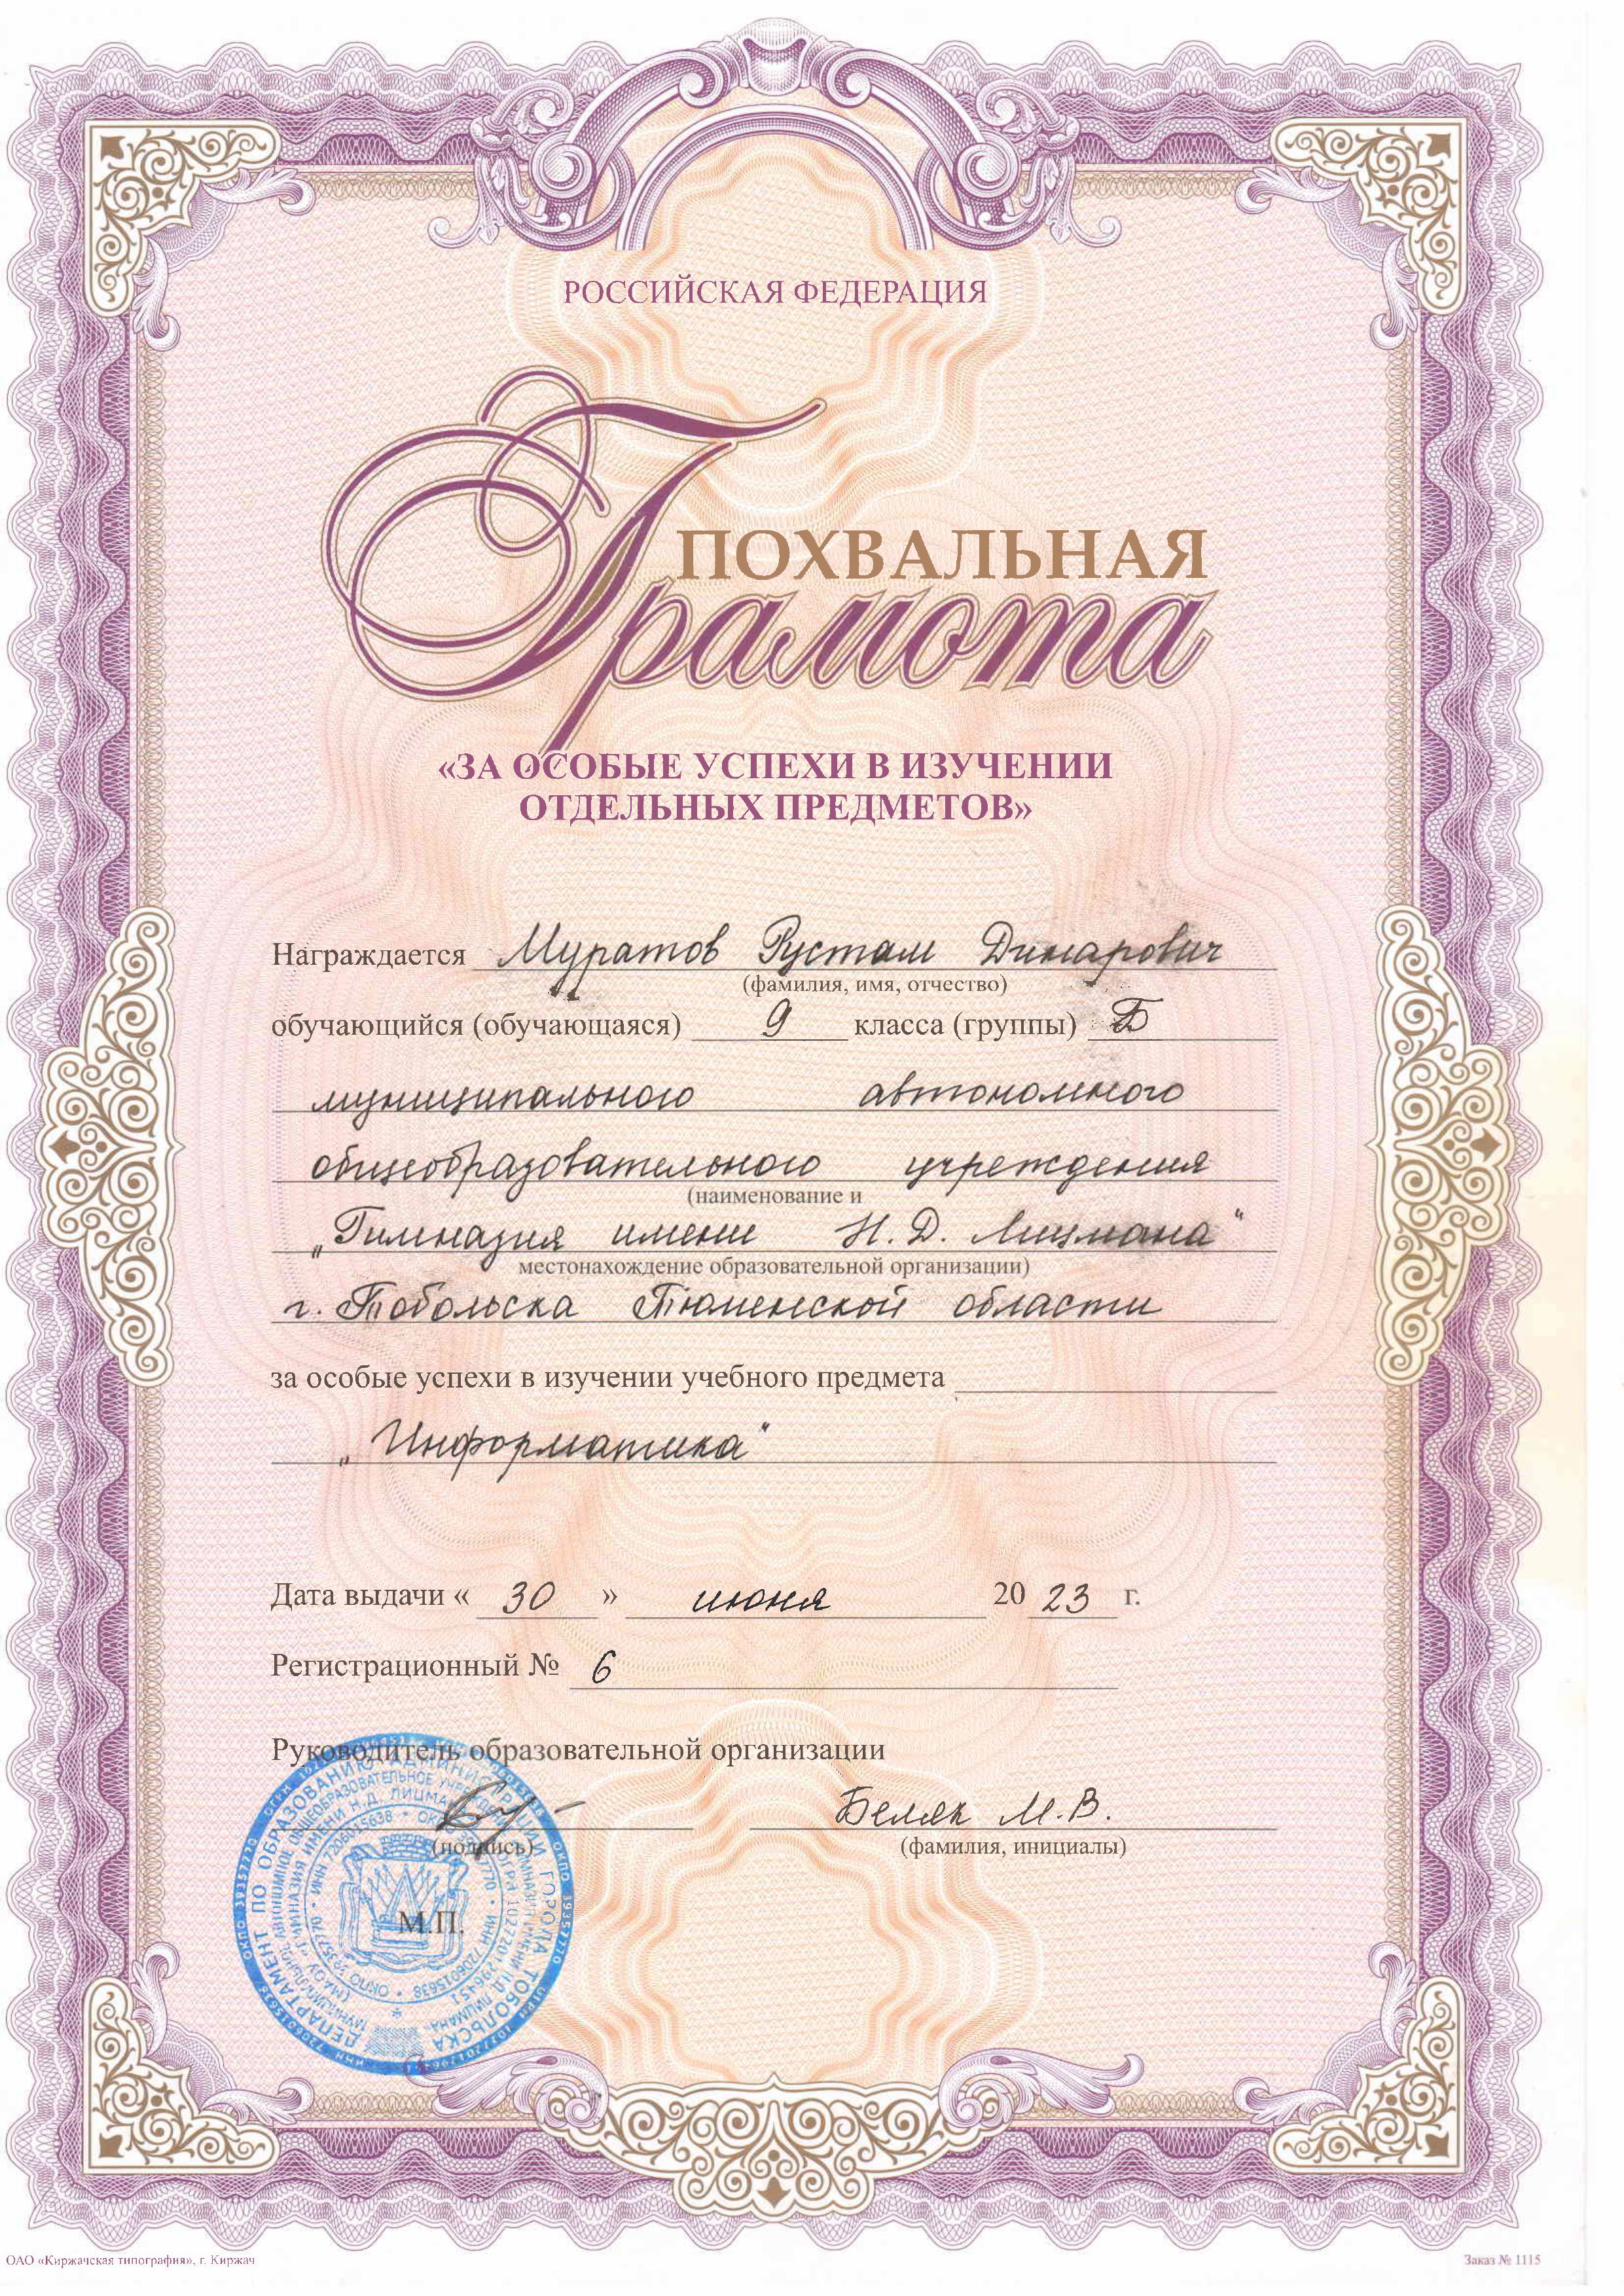 РОССИЙСКАЯ ФЕДЕРАЦИЯ
ПОХВАЛЬНАЯ
Грамота
«ЗА ОСОБЫЕ УСПЕХИ В ИЗУЧЕНИИ
ОТДЕЛЬНЫХ ПРЕДМЕТОВ»
Награждается Муратов Рустам Динарович
(фамилия, имя, отчество)
обучающийся (обучающаяся) 9 класса (группы) Б
муниципального автономного
общеобразовательного учреждения
(наименование и
„Гимназия имени Н. Д. Лицмана"
местонахождение образовательной организации)
г. Тобольска Тюменской области
за особые успехи в изучении учебного предмета
„Информатика"
Дата выдачи « 30 » июня 20 23 г.
Регистрационный № 6
Руководитель образовательной организации
Беляк М.В.
(подпись) (фамилия, инициалы)
М.П.
ДЕПАРТАМЕНТ ПО ОБРАЗОВАНИЮ АДМИНИСТРАЦИИ ГОРОДА ТОБОЛЬСКА
ОАО «Киржачская типография», г. Киржач
Заказ № 1115